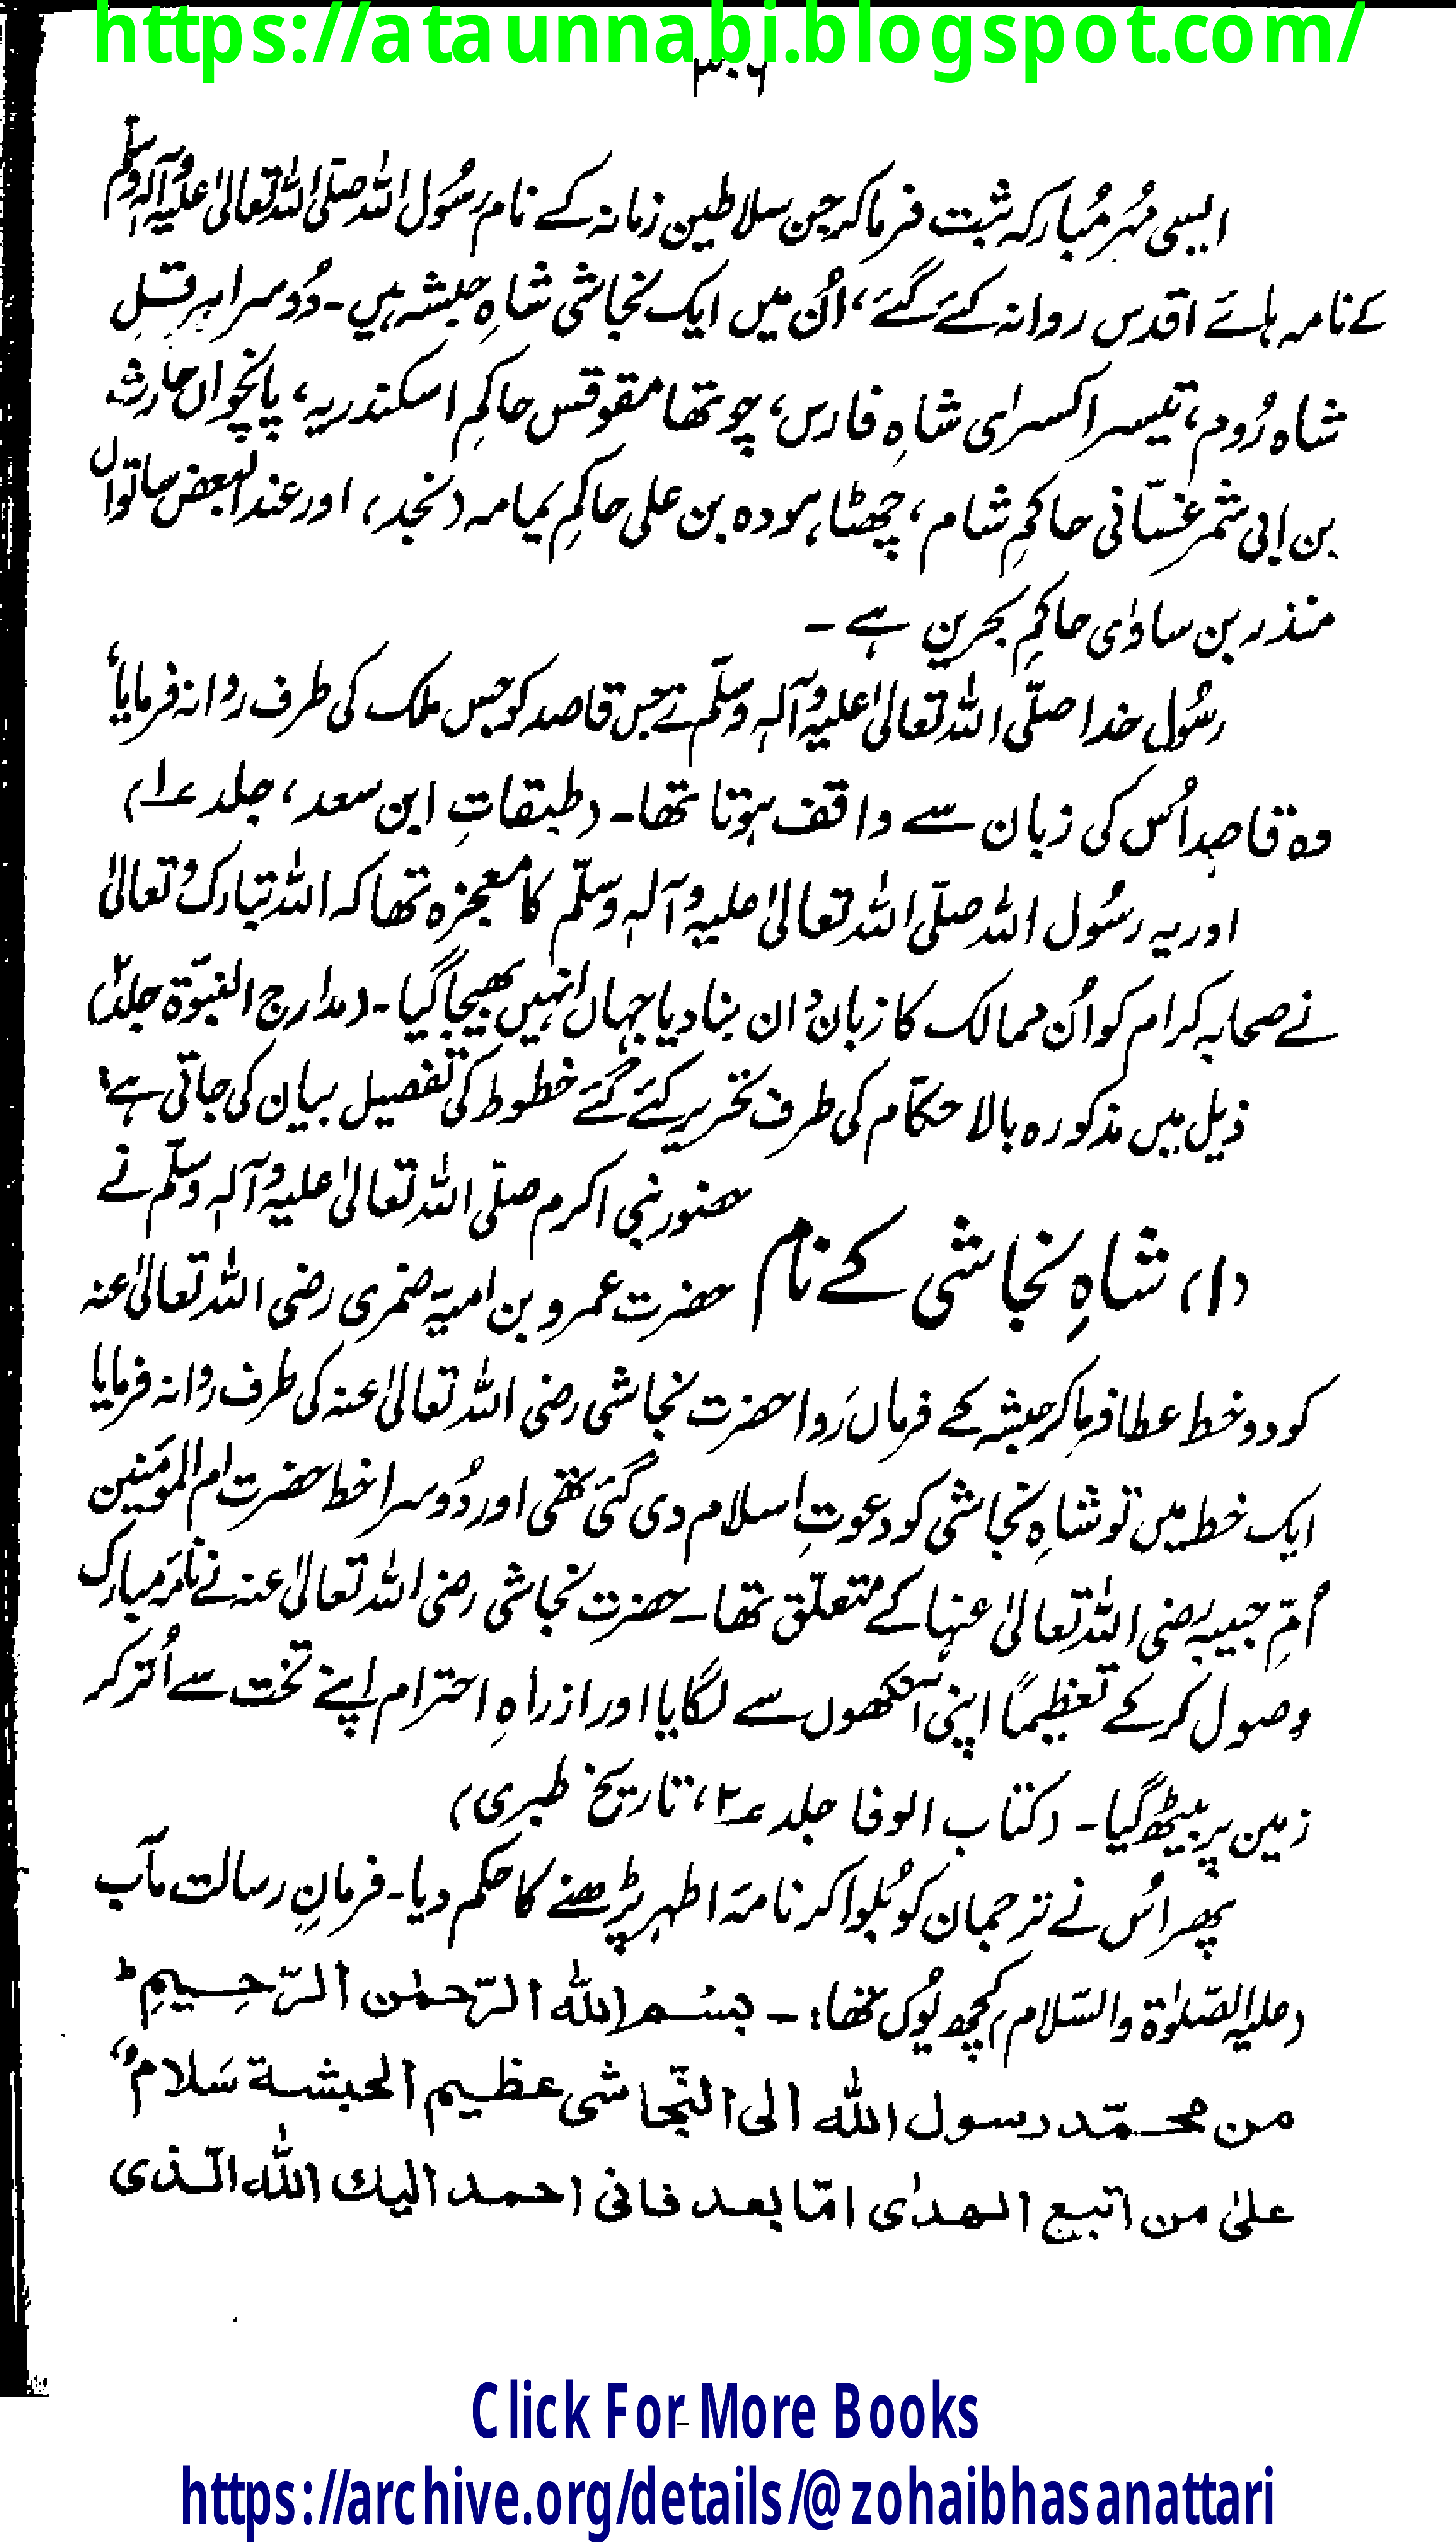 https://ataunnabi.blogspot.com/
۳۰۶
ایسی مُہرِ مُبارکہ ثبت فرما کر جن سلاطین زمانہ کے نام رسُول اللہ صلّی اللہ تعالیٰ علیہ وآلہٖ وسلّم
کے نامہ ہائے اقدس روانہ کئے گئے، اُن میں ایک نجاشی شاہِ حبشہ ہیں۔ دُوسرا ہرقلِ
شاہ رُوم، تیسرا کسرٰی شاہِ فارس، چوتھا مقوقس حاکمِ اسکندریہ، پانچواں حارث
بن ابی شمر غسّانی حاکمِ شام، چھٹا ہودہ بن علی حاکمِ یمامہ (نجد) اور عند البعض ساتواں
منذر بن ساوٰی حاکمِ بحرین ہے ۔
رسُولِ خدا صلّی اللہ تعالیٰ علیہ وآلہٖ وسلّم نے جس قاصد کو جس ملک کی طرف روانہ فرمایا،
وہ قاصد اُس کی زبان سے واقف ہوتا تھا۔ (طبقاتِ ابن سعد، جلد ۱)
اور یہ رسُول اللہ صلّی اللہ تعالیٰ علیہ وآلہٖ وسلّم کا معجزہ تھا کہ اللہ تبارک و تعالیٰ
نے صحابہ کرام کو اُن ممالک کا زبان دان بنا دیا جہاں انہیں بھیجا گیا۔ (مدارج النبوّۃ جلد ۲)
ذیل میں مذکورہ بالا حکّام کی طرف تحریر کئے گئے خطوط کی تفصیل بیان کی جاتی ہے:
(۱) شاہِ نجاشی کے نام
حضور نبی اکرم صلّی اللہ تعالیٰ علیہ وآلہٖ وسلّم نے
حضرت عمرو بن امیہّ ضمری رضی اللہ تعالیٰ عنہ
کو دو خط عطا فرما کر حبشہ کے فرماں رَوا حضرت نجاشی رضی اللہ تعالیٰ عنہ کی طرف روانہ فرمایا
ایک خط میں تو شاہِ نجاشی کو دعوتِ اسلام دی گئی تھی اور دُوسرا خط حضرت ام المؤمنین
اُمِّ حبیبہ رضی اللہ تعالیٰ عنہا کے متعلّق تھا۔ حضرت نجاشی رضی اللہ تعالیٰ عنہ نے نامۂ مبارک
وصول کر کے تعظیماً اپنی آنکھوں سے لگایا اور از راہِ احترام اپنے تخت سے اُتر کر
زمین پر بیٹھ گیا۔ (کتاب الوفا جلد ۲، تاریخ طبری)
پھر اُس نے ترجمان کو بُلوا کر نامۂ اطہر پڑھنے کا حکم دیا۔ فرمانِ رسالت مآب
(علیہ الصّلوٰۃ والسّلام) کچھ یُوں تھا: ۔ بسْم اللہ الرّحمٰن الرّحِیمِ ط
من محمّد رسول اللہ الی النّجاشی عظیم الحبشۃ سَلامٌ،
علیٰ من اتبع الہدٰی امّا بعد فانی احمد الیك اللہ الّذی
Click For More Books
https://archive.org/details/@zohaibhasanattari